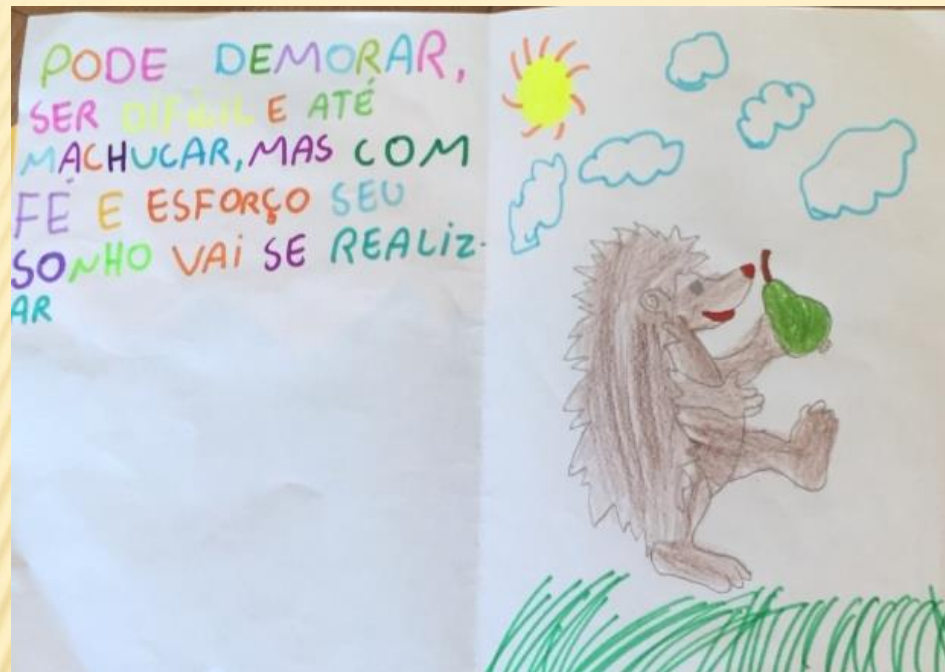 PODE DEMORAR,
SER DIFÍCIL E ATÉ
MACHUCAR, MAS COM
FÉ E ESFORÇO SEU
SONHO VAI SE REALIZ-
AR